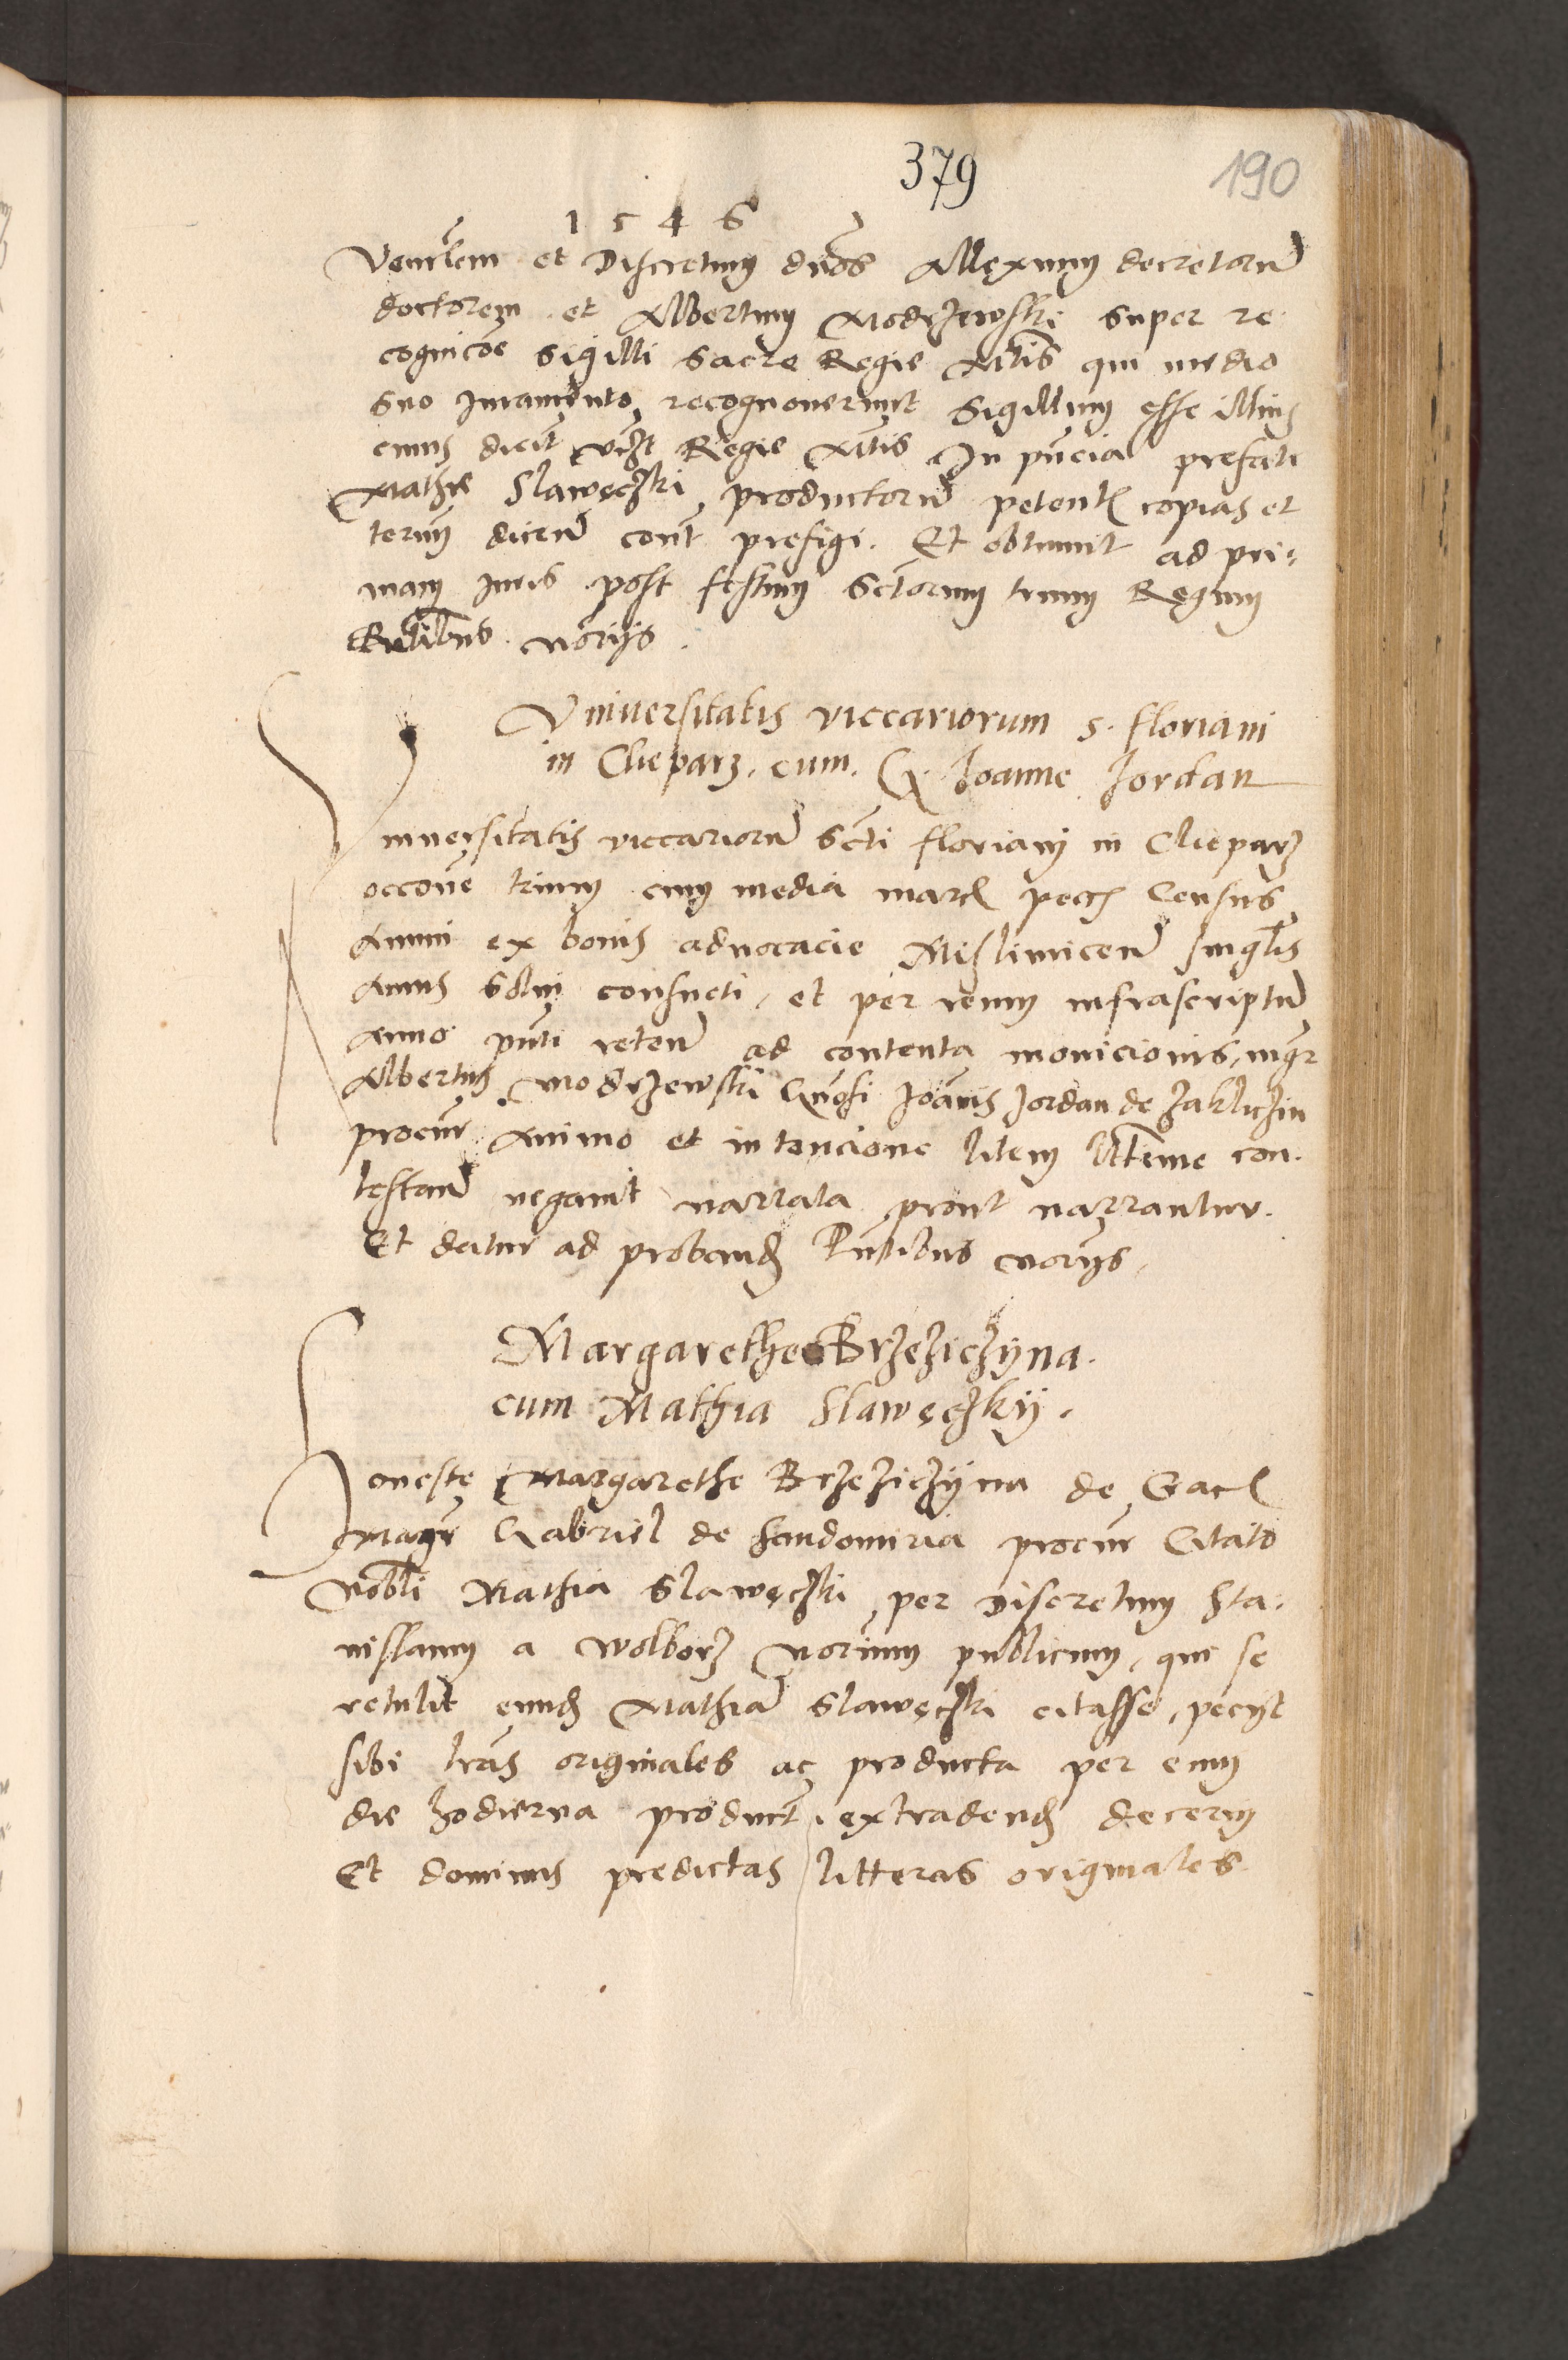 379
190
1 5 4 6
Venerlem et Discretum dnos Allexium decretorum
doctorem et Albertum Modrzewski super re
cognicoe Sigilli Sacre Regie Mtis qui medio
suo Juramento recognoverunt Sigillum esse illius
cuius dicit vidlt Regie Mtis In pncia prefati
Mathie Slawęczki productorum petent copias et
termm dicend cont prefigi. Et obtinuit ad pri:
mam juris post festum Sctorum trium Regum
Pntibus noriis.
Universitatis viccariorum s. floriani
in Clieparz. cum. G. Joanne Jordan
niversitatis viccariorum Scti floriani in Clieparz
occone trium cum media marc pecc Census
Annui ex bonis advocacie Mislimicen singlis
Annis Solvi consueti, et per reum infrascriptum
Anno pnti reten ad contenta monicionis, mgr
Albertus Modrzewski Gnosi Joanis Jordan de Zakliczin
procur Animo et intencione litem lttime con
testand negavit narrata prout narrantur.
Et datur ad proband Pntibus noriis,
Margarethe Brzeziczyna.
cum Mathia Slawęczky.
Honeste Margarethe Brzeziczyna de Gacz
Magr Gabriel de Sandomiria procur Citato
Nobli Mathia Slawęczki per Discretum Sta:
nislaum a Wolborz Norium publicum, qui se
retulit eund Mathiam Slawęczki citasse, peciit
sibi lras originales ac producta per eum
die hodierna product extradend decerni
Et dominus predictas litteras originales.